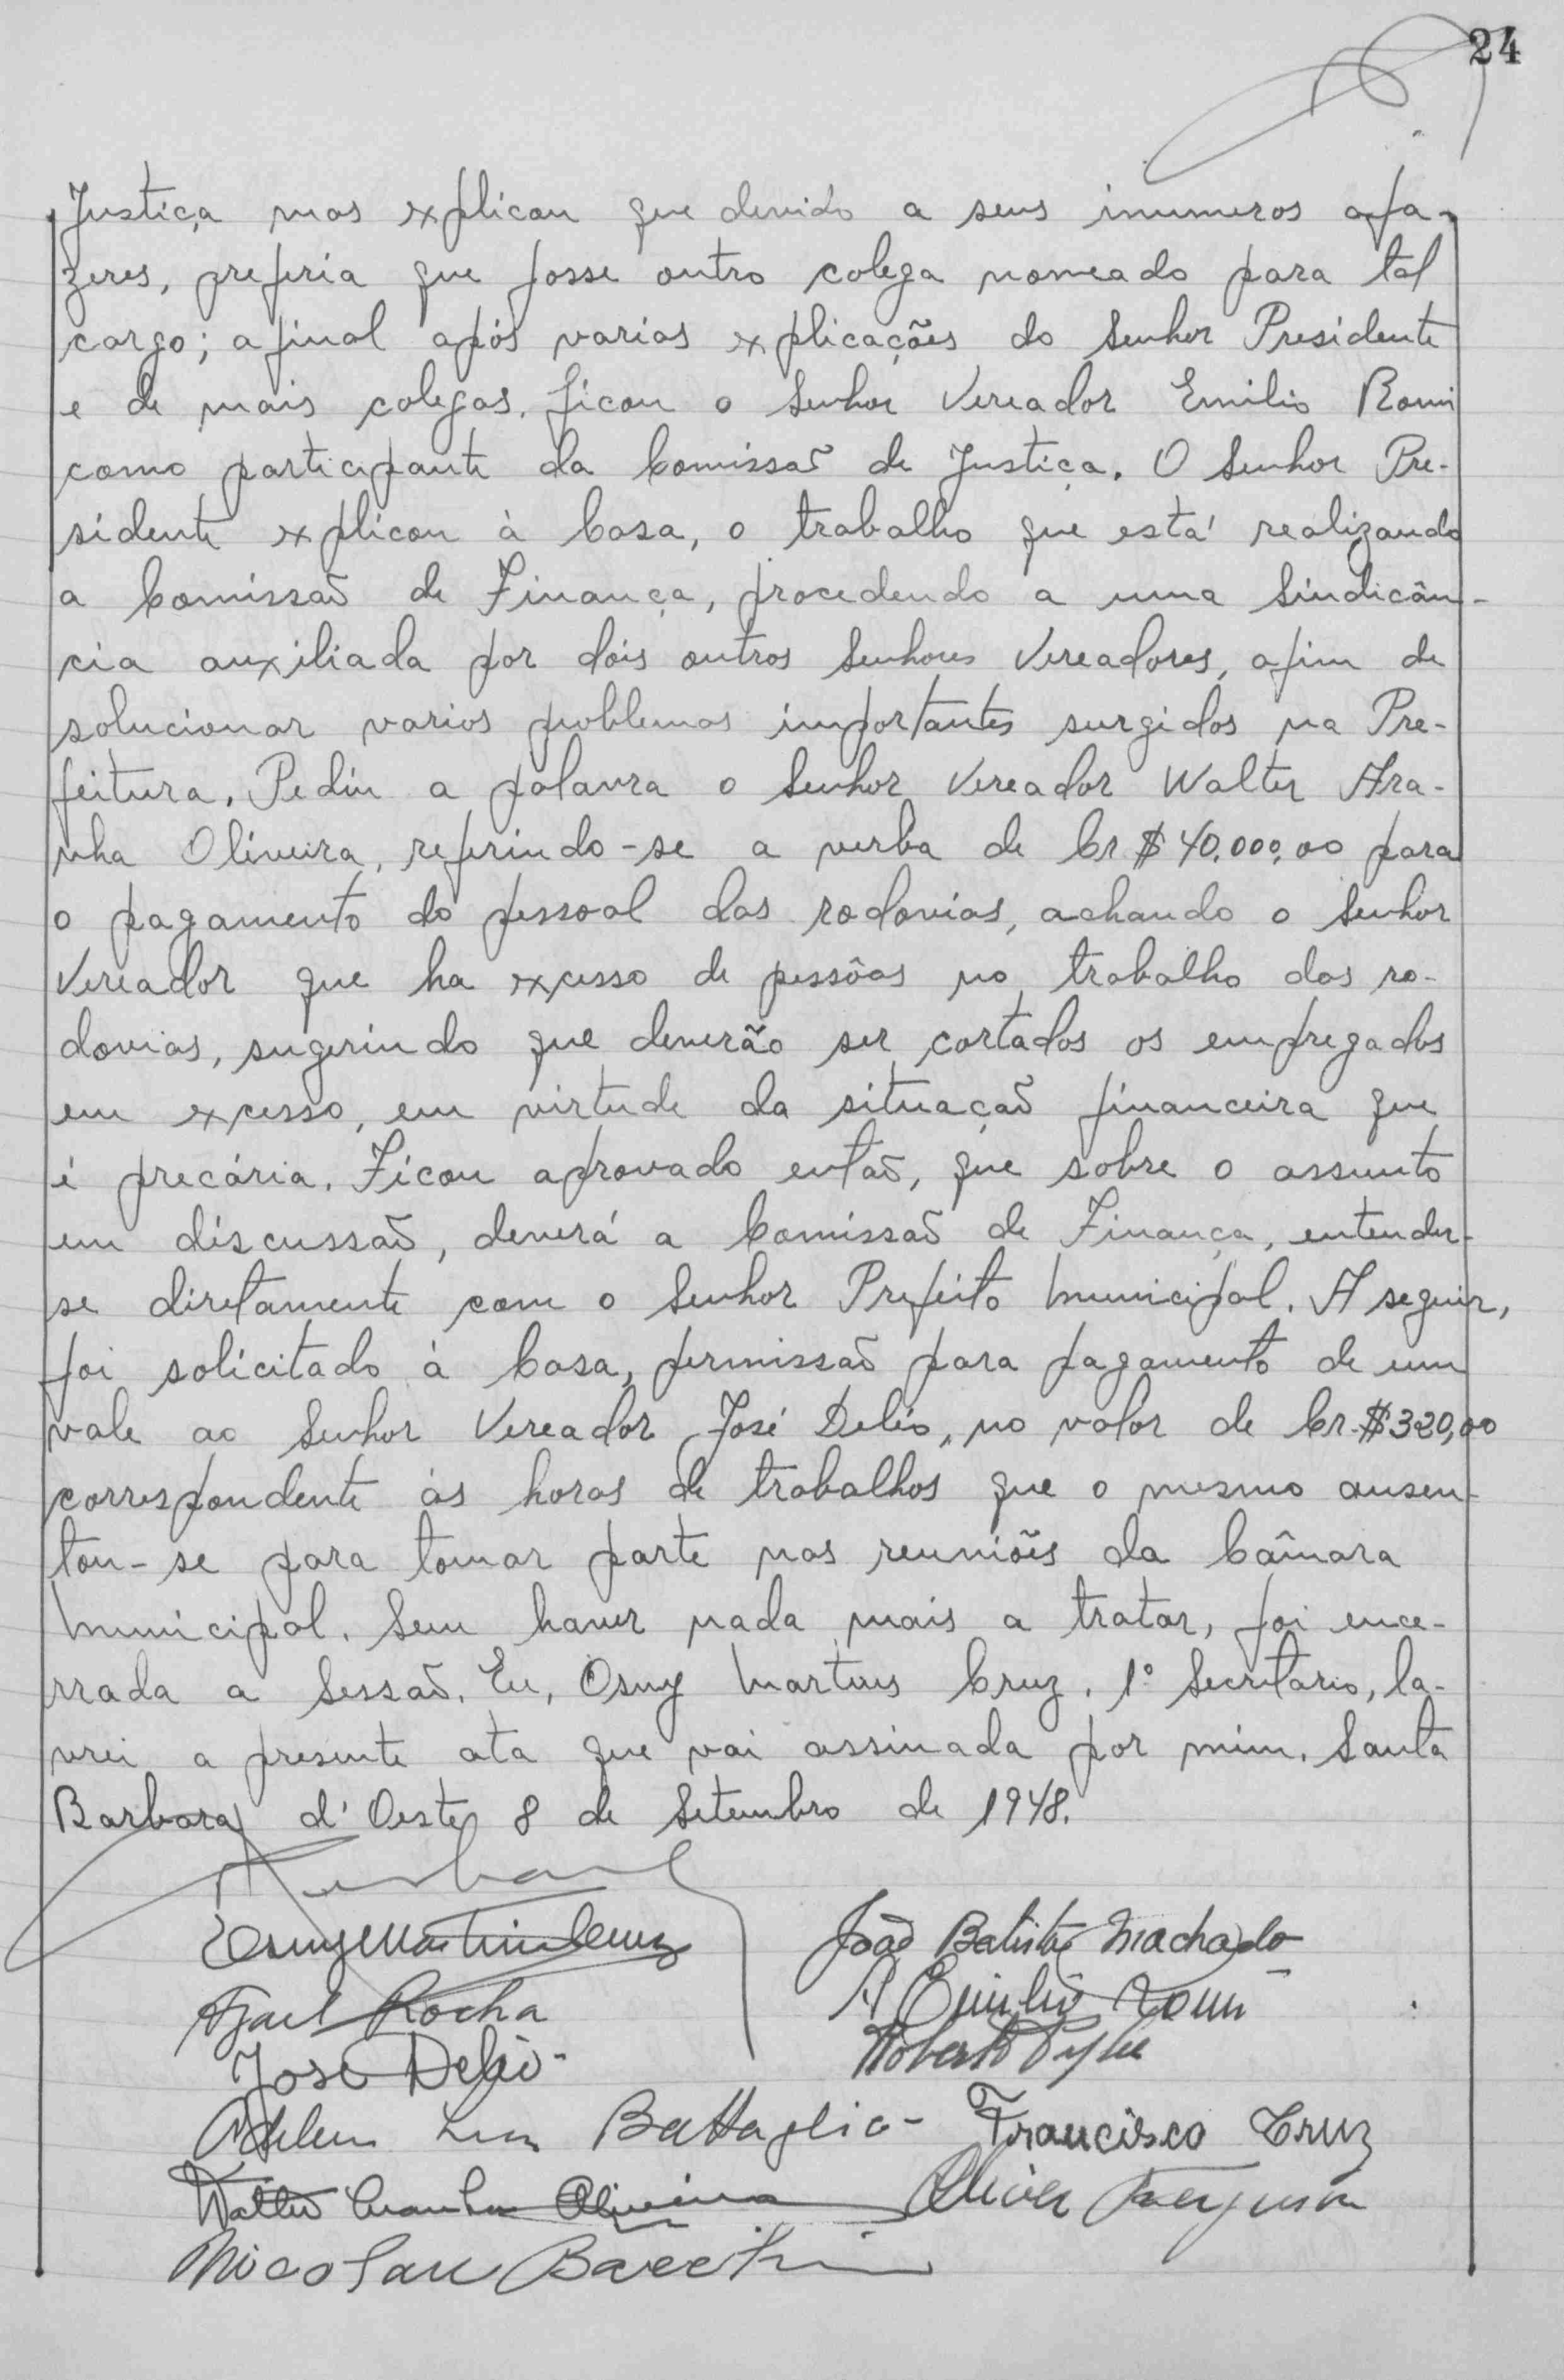 24
Justiça mas explicou que devido a seus inumeros afa-
zeres, preferia que fosse outro colega nomeado para tal
cargo; afinal após varias explicações do Senhor Presidente
e de mais colegas, ficou o Senhor Vereador Emilio Romi
como participante da Comissão de Justiça. O Senhor Pre-
sidente explicou à Casa, o trabalho que está realizando
a Comissão de Finança, procedendo a uma Sindicân-
cia auxiliada por dois outros Senhores Vereadores, afim de
solucionar varios problemas importantes surgidos na Pre-
feitura. Pediu a palavra o Senhor Vereador Walter Ara-
nha Oliveira, referindo-se a verba de Cr$ 40.000,00 para
o pagamento do pessoal das rodovias, achando o Senhor
Vereador que ha excesso de pessôas no trabalho das ro-
dovias, sugerindo que deverão ser cortados os empregados
em excesso, em virtude da situação financeira que
é precária. Ficou aprovado então, que sobre o assunto
em discussão, deverá a Comissão de Finança, entender-
se diretamente com o Senhor Prefeito Municipal. A seguir,
foi solicitado à Casa, permissão para pagamento de um
vale ao Senhor Vereador José Delio, no valor de Cr.$320,00
correspondente às horas de trabalhos que o mesmo ausen-
tou-se para tomar parte nas reuniões da Câmara
Municipal. Sem haver nada mais a tratar, foi ence-
rrada a Sessão. Eu, Osny Martins Cruz, 1º Secretario, la-
vrei a presente ata que vai assinada por mim. Santa
Barbara d'Oeste, 8 de Setembro de 1948.
Osny Martins Cruz
João Batista Machado
Rocha
A Emilio Romi
José Delio
Roberto
Battaglia
Francisco Cruz
Walter Aranha Oliveira
Ferguson
Nicolau Bacchi